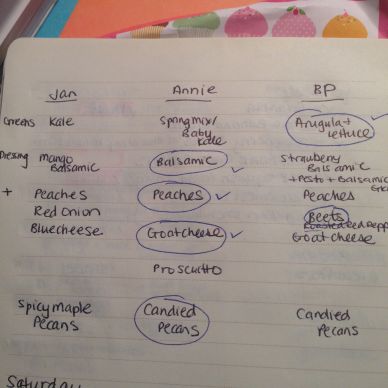 Jan Annie BP
Greens Kale Spring mix/ Arugula +
Baby lettuce
Kale
Dressing mango Balsamic Strawberry
Balsamic Balsamic
+ Pesto + Balsamic
+ Peaches Peaches Peaches
Red onion Beets
Bluecheese Goatcheese Goatcheese
Proscuitto
Spicy maple Candied Candied
Pecans Pecans Pecans
Saturday